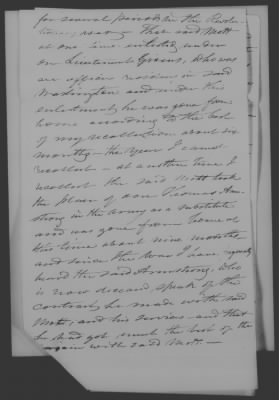 for several periods in the Revolu-
tionary war — That said Mott
at one time enlisted under
one Lieutenant who was
an officer residing in said
Washington and under this
enlistment he was gone from
home according to the best
of my recollection about six
months — the year I cannot
recollect — at another time I
recollect the said Mott took
the place of one Thomas Arm-
strong in the army as a substitute
and was gone from home at
this time about nine months
and since the war I have frequently
heard the said Armstrong, who
is now deceased, speak of the
contract he made with the said
Mott, and his services and that
he had got much the best of the
bargain with said Mott. —